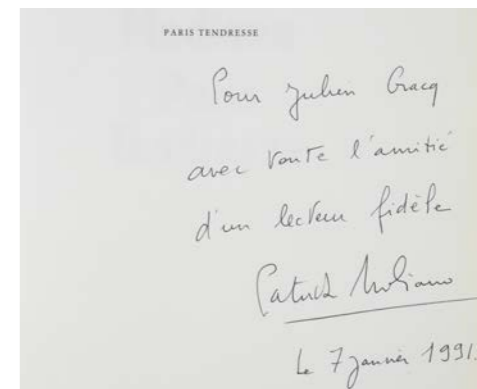 PARIS TENDRESSE
Pour Julien Gracq
avec toute l'amitié
d'un lecteur fidèle
Patrick Modiano
Le 7 janvier 1991.